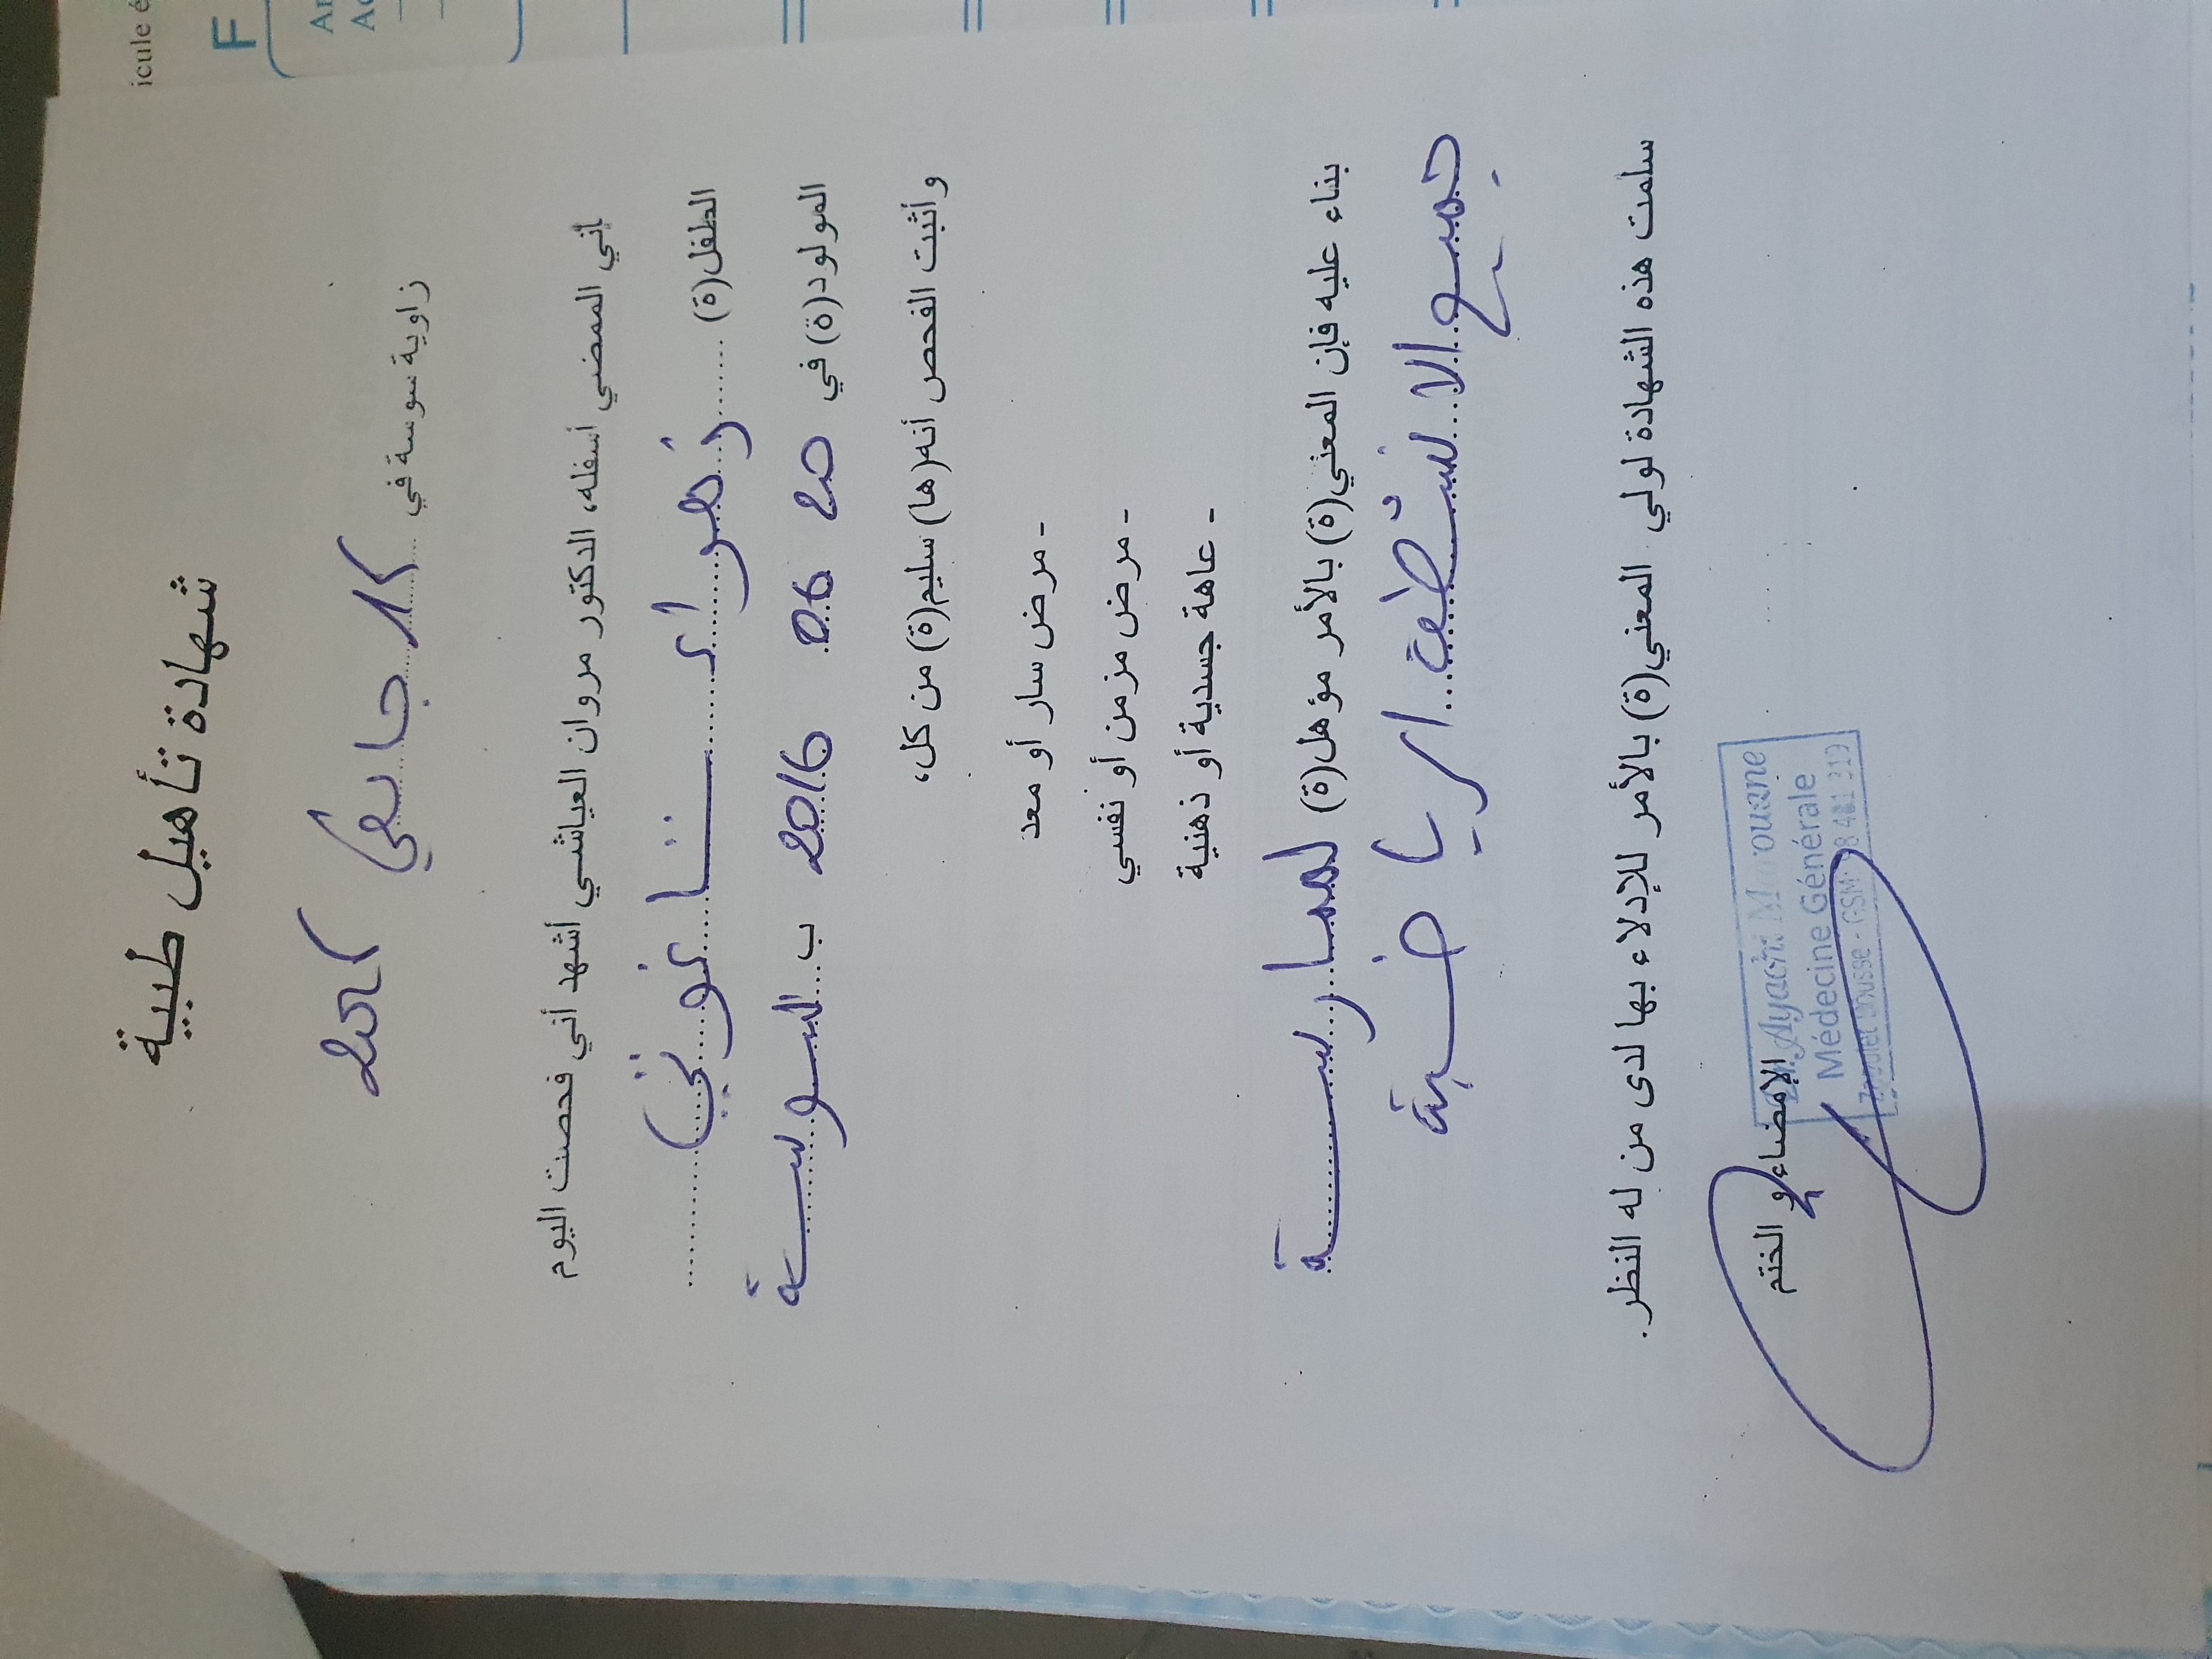 icule é
F
شهادة تأهيل طبية
زاوية سوسة في
إني الممضي أسفله، الدكتور مروان العياشي أشهد أني فحصت اليوم
الطفل(ة)
المولود(ة) في 20 06 2016 ب سوسة
وأثبت الفحص أنه(ها) سليم(ة) من كل،
- مرض سار أو معد
- مرض مزمن أو نفسي
- عاهة جسدية أو ذهنية
بناء عليه فإن المعني(ة) بالأمر مؤهل(ة) لممارسة
جميع الانشطة الرياضية
سلمت هذه الشهادة لولي المعني(ة) بالأمر للإدلاء بها لدى من له النظر.
الإمضاء و الختم
Dr. Ayachi Marouane
Médecine Générale
Sousse - GSM